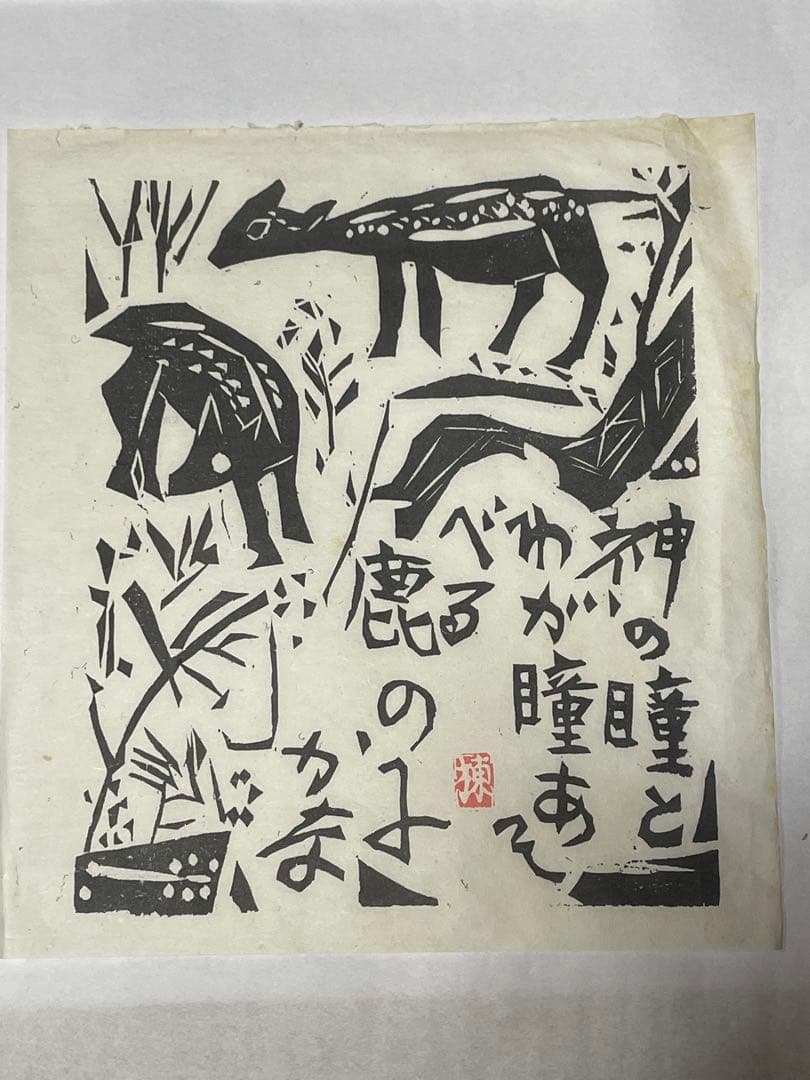 神の瞳と
わが瞳あそ
べる
鹿の子
かな